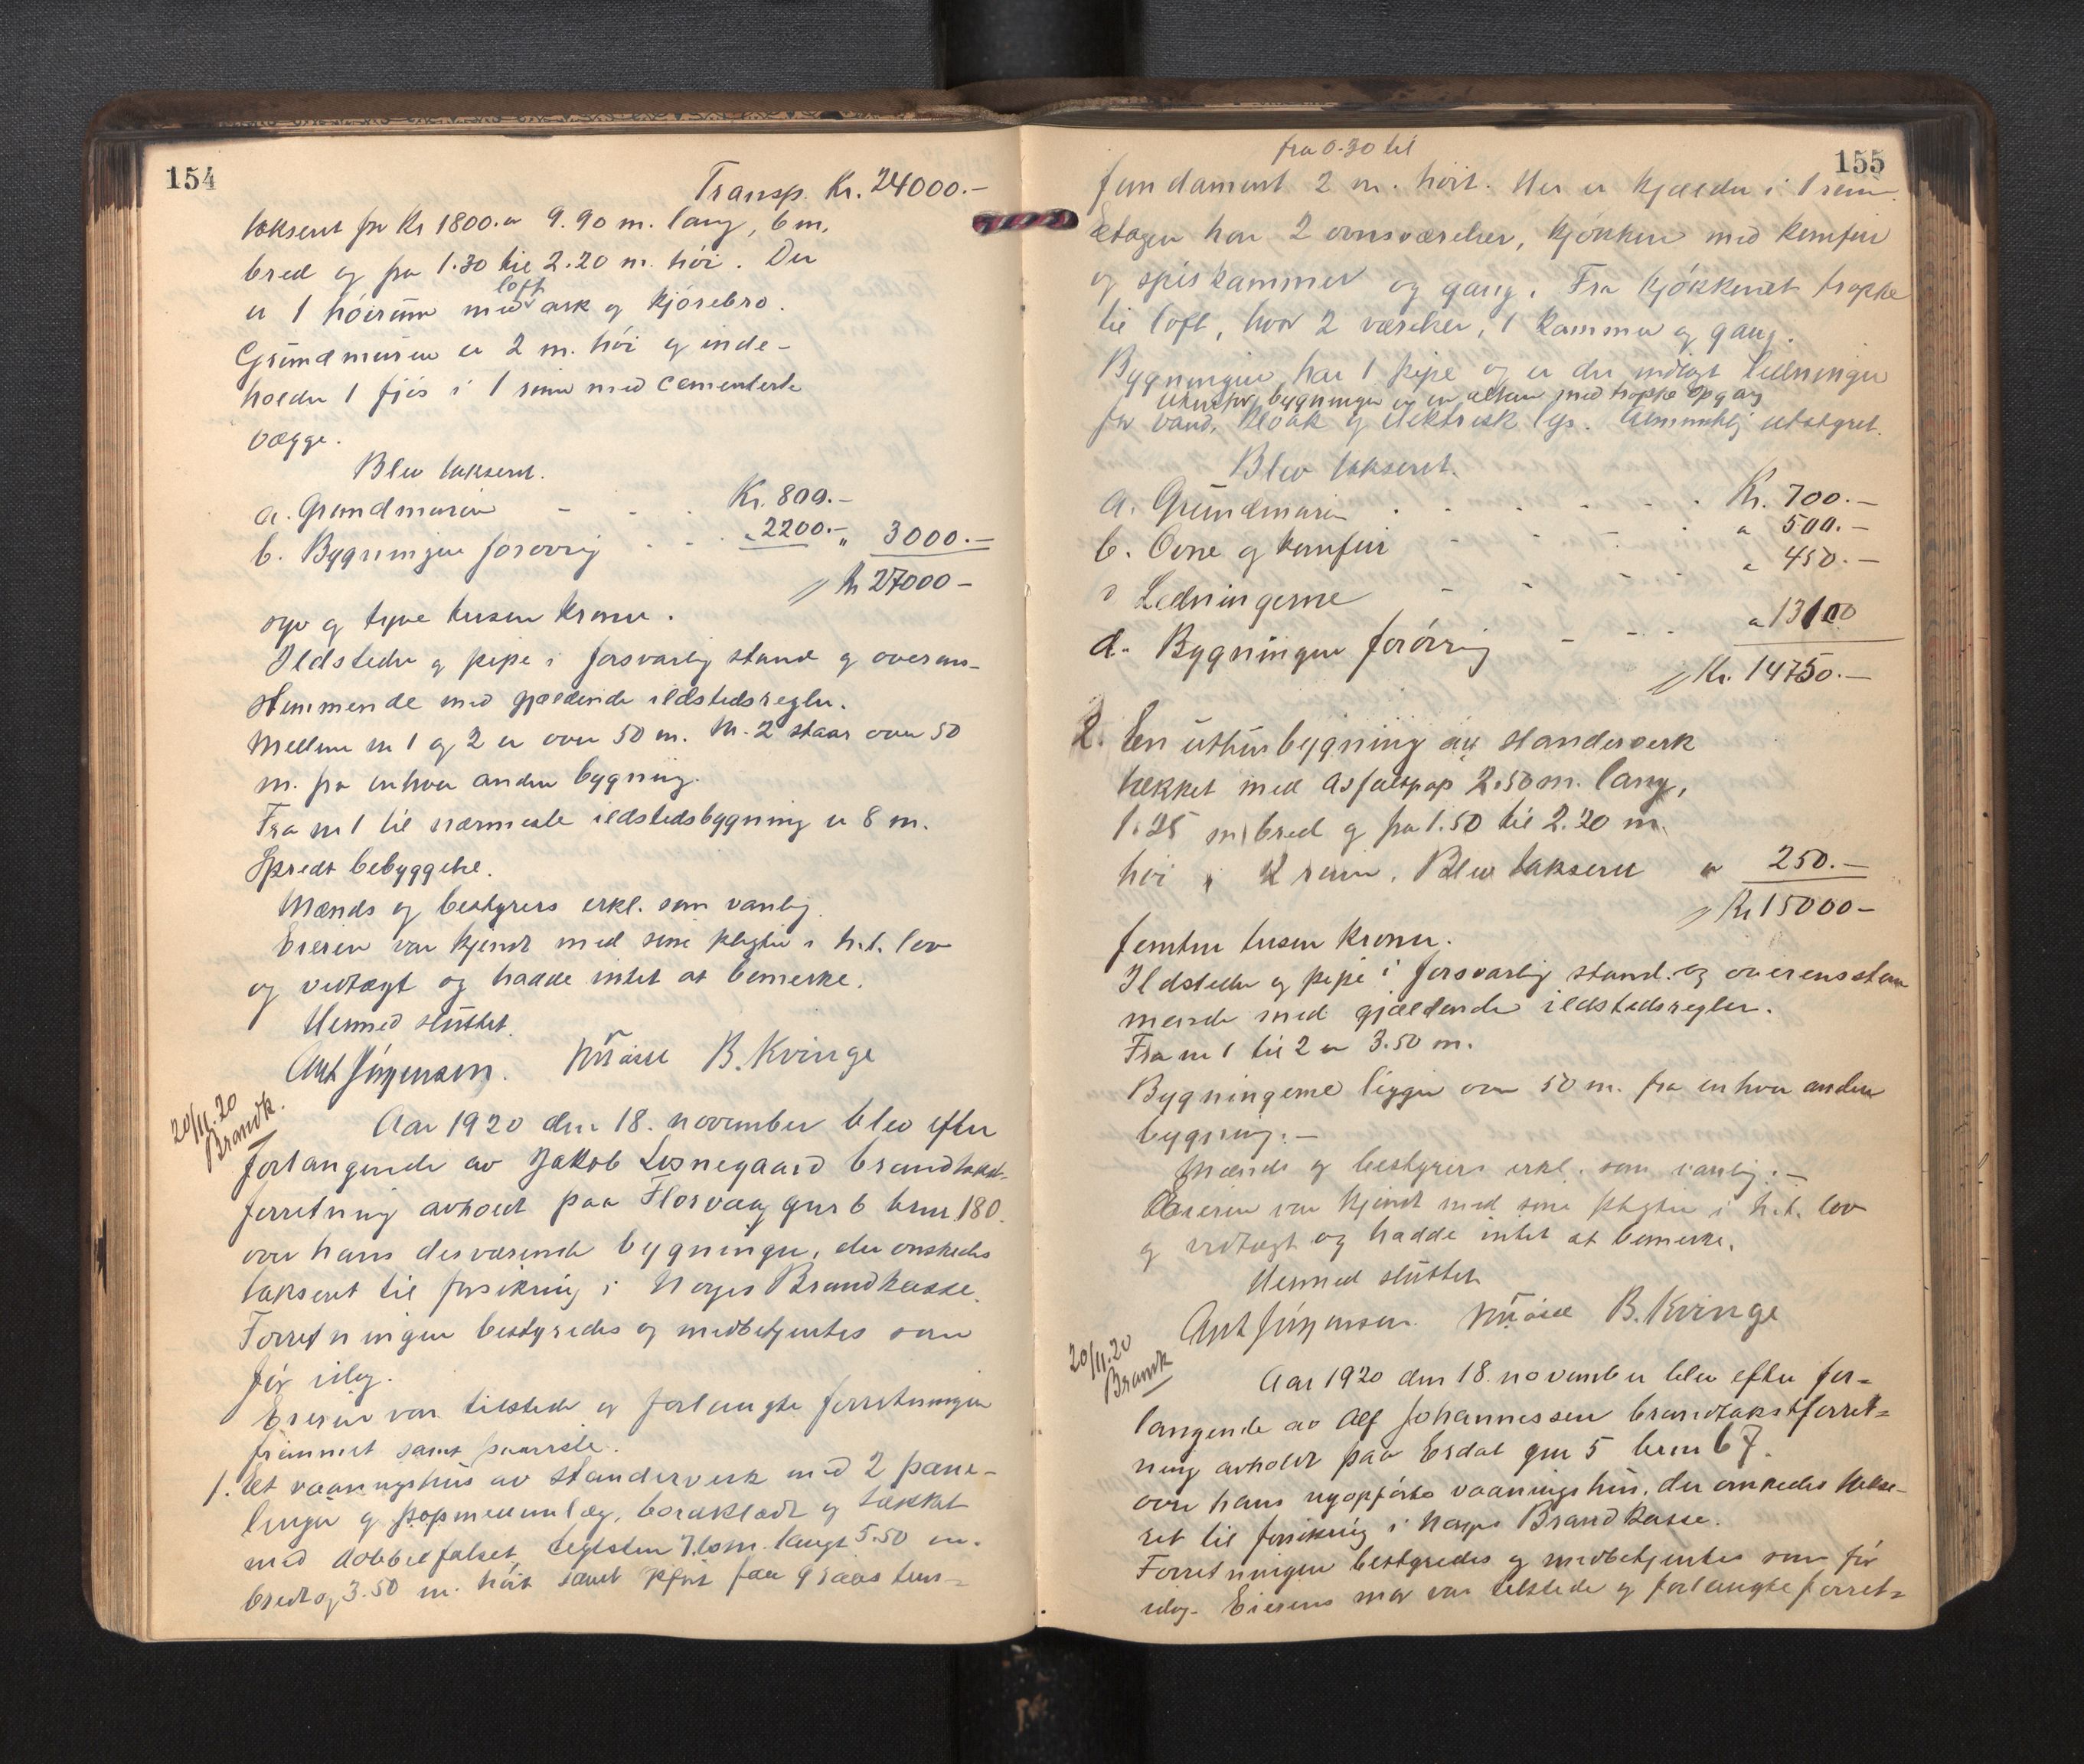 154
Transp. Kr. 24000.-
taksert for Kr 1800. er 9.90 m. lang, 6 m.
bred og fra 1.30 til 2.20 m. høi. Der
er 1 høirum med loft ark og kjørebro.
Grundmuren er 2 m. høi og inde-
holder 1 fjøs i 1 rum med cementerte
vægge.
Blev taksert.
a. Grundmuren - - - Kr. 800.-
b. Bygningen forøvrig - - - " 2200.- " 3000.-
// Kr 27000-
syv og tyve tusen kroner.
Ildsteder og pipe i forsvarlig stand og overens-
stemmende med gjældende ildstedsregler.
Mellem nr 1 og 2 er over 50 m. Nr. 2 staar over 50
m. fra enhver anden bygning.
Fra nr 1 til nærmeste ildstedsbygning er 8 m.
Spredt bebyggelse.
Mænds og bestyrers erkl. som vanlig.
Eieren var kjendt med sine pligter i h.t. lov
og vedtægt og hadde intet at bemerke.
Hermed sluttet.
Ant Jørgensen. B. Kvinge
20/11.20
Brandk.
Aar 1920 den 18. november blev efter
forlangende av Jakob Løsnegaard brandtakst-
forretning avholdt paa Florvaag gnr 6 brnr. 180.
over hans derværende bygninger, der ønskedes
taksert til forsikring i Norges Brandkasse.
Forretningen bestyredes og medbetjentes som
før idag.
Eieren var tilstede og forlangte forretningen
fremmet samt paaviste.
1. Et vaaningshus av standerverk med 2 pane-
linger og papmellemlæg, bordklædt og tækket
med dobbelfalset teglsten 7.60 m. langt 5.50 m.
bredt og 3.50 m. høit samt opført paa graastens-
155
fra 0.30 til
fundament 2 m. høit. Her er kjælder i 1 rum.
Etagen har 2 ovnsværelser, kjøkken med komfur
og spiskammer og gang. Fra kjøkkenet trappe
til loft, hvor 2 værelser, 1 kammer og gang.
Bygningen har 1 pipe og er der indlagt ledninger
utenfor bygningen er en altan med trappe opgang
for vand, kloak og elektrisk lys. Almindelig utstyret.
Blev taksert.
a. Grundmuren . . . . . Kr. 700.-
b. Ovne og komfur - - - - " 500.-
c Ledningerne - - - - " 450.-
d. Bygningen forøvrig - - - " 13100
// Kr. 14750.-
2. En uthusbygning av standerverk
tækket med asfaltpap 2.50 m. lang,
1.25 m bred og fra 1.50 til 2.20 m.
høi i 2 rum. Blev taksert " 250.-
// Kr 15000-
femten tusen kroner.
Ildsteder og pipe i forsvarlig stand og overensstem
mende med gjældende ildstedsregler.
Fra nr 1 til 2 er 3.50 m.
Bygningerne ligger over 50 m. fra enhver anden
bygning.-
Mænds og bestyrers erkl. som vanlig.-
Eieren var kjendt med sine pligter i h.t. lov
og vedtægt og hadde intet at bemerke.
Hermed sluttet
Ant Jørgensen. B. Kvinge
20/11.20
Brandk
Aar 1920 den 18. november blev efter for-
langende av Alf Johannessen brandtakstforret-
ning avholdt paa Erdal gnr 5 brnr 67.
over hans nyopførte vaaningshus, der ønskedes takse-
ret til forsikring i Norges Brandkasse.
Forretningen bestyredes og medbetjentes som før
idag. Eierens mor var tilstede og forlangte forret-